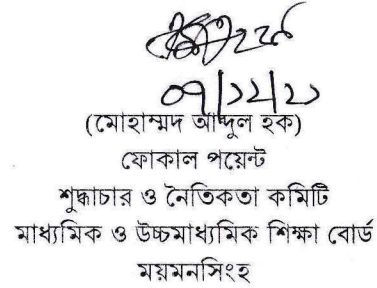 ০৭/১২/২১
(মোহাম্মদ আব্দুল হক)
ফোকাল পয়েন্ট
শুদ্ধাচার ও নৈতিকতা কমিটি
মাধ্যমিক ও উচ্চমাধ্যমিক শিক্ষা বোর্ড
ময়মনসিংহ